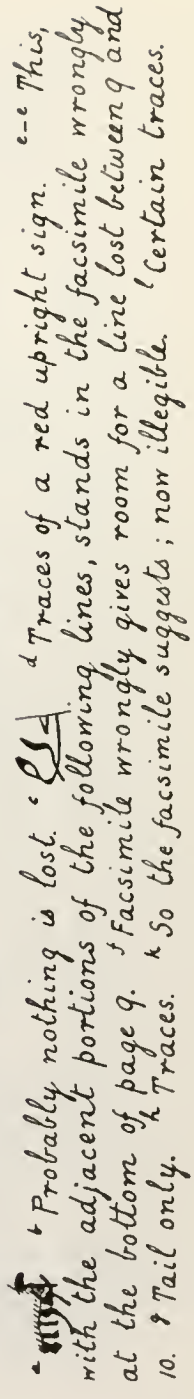 a b Probably nothing is lost. c d Traces of a red upright sign. e–e This,
with the adjacent portions of the following lines, stands in the facsimile wrongly
at the bottom of page 9. f Facsimile wrongly gives room for a line lost between 9 and
10. g Tail only. h Traces. k So the facsimile suggests; now illegible. l Certain traces.